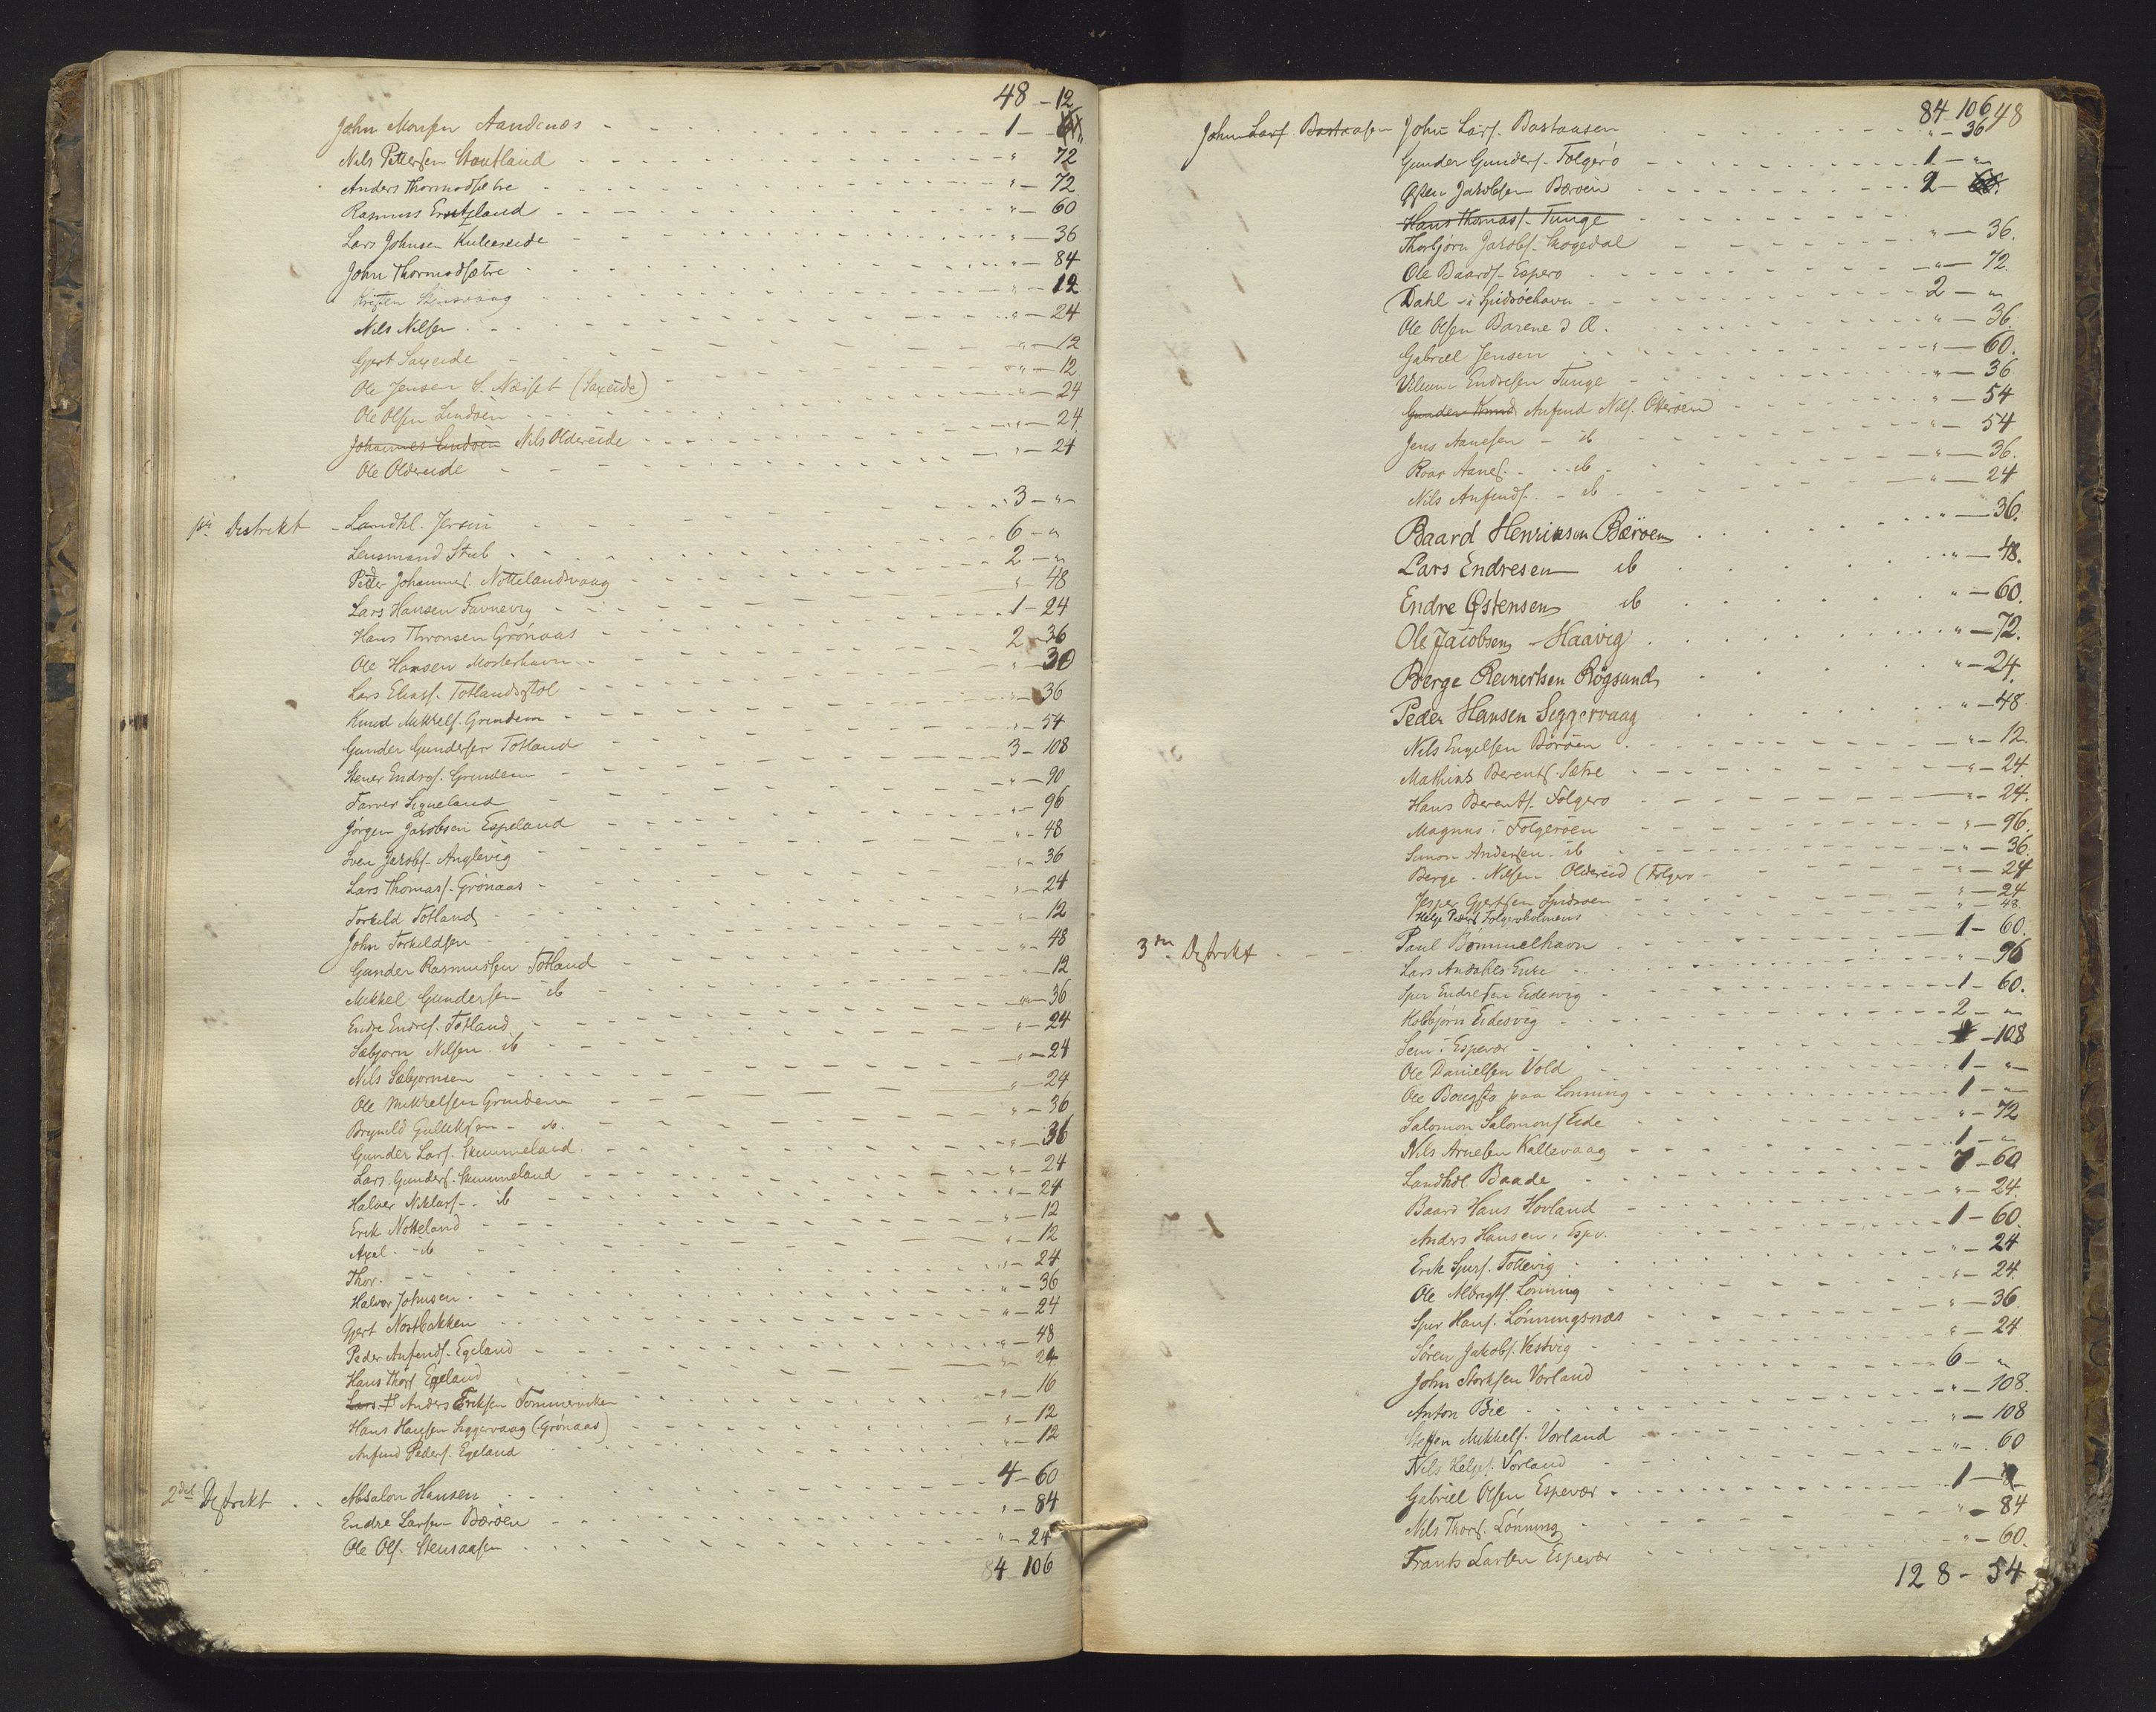 48 - 12
John Monsen Aandenæs - 1 -
Nils Pettersen Stautland - " 72
Anders Thormodsætre - " - 72
Rasmus Ersland - " - 60
Lars Johnsen Kuleseide - " - 36
John Thormodsætre - " - 84
Kristen Steinsvaag - " - 12
Nils Nilsen - " - 24
Gjert Saxeide - " - 12
Ole Jensen S. Næsset (Saxeide) - " - 12
Ole Olsen Lindøen - " - 24
Johannes Lindøen Nils Oldereide - " - 24
Ole Oldereide - " - 24
1ste Distrikt - Landhl. Jersin - 3 - "
Lensmand Stub - 6 - "
Peder Johannes. Nottelandsvaag - 2 - "
Lars Hansen Favnevig - " - 48
Hans Thronsen Grønaas - 1 - 24
Ole Hansen Mosterhavn - 2 - 36
Lars Eliass. Totlandsstøl - " - 30
Knud Mikkels. Grindem - " - 36
Gunder Gundersen Totland - " - 54
Stener Endres. Grindem - 3 - 108
Farver Siqueland - " - 90
Jørgen Jakobsen Espeland - " - 96
Sven Jakobs. Anglevig - " - 48
Lars Thomas. Grønaas - " - 36
Torkild Totland - " - 24
John Torkildsen - " - 12
Gunder Rasmussen Totland - " - 48
Mikkel Gundersen ib - " - 12
Endre Endres. Totland - " - 36
Sæbjørn Nilsen ib - " - 24
Nils Sæbjørnsen - " - 24
Ole Mikkelsen Grindem - " - 24
Brynild Gulliksen - ib. - " - 36
Gunder Lars. Skimmeland - " - 36
Lars Gunders. Skimmeland - " - 24
Halvor Niklass. - ib - " - 24
Erik Notteland - " - 12
Axel - ib - " - 12
Thor - " - 24
Halvor Johnsen - " - 36
Gjert Nordbakken - " - 24
Peder Anfinds. Egeland - " - 48
Hans Thors. Egeland - " - 24
Lars T Anders Eriksen Tømmerviken - " - 16
Hans Hansen Siggervaag (Grønaas) - " - 12
Anfind Peders. Egeland - " - 12
2det Distrikt . . Absalon Hansen - 4 - 60
Endre Larsen Børøen - " - 84
Ole Ols. Stensaasen - " - 24
84 - 106
84 - 106 48
John Lars. Bastaasen John Lars. Bastaasen - " - 36
Gunder Gunders. Folgerø - 1 - "
Østen Jakobsen Børøen - 2 - 60
Hans Thomas. Tunge
Thorbjørn Jakobs. Skogedal - " - 36.
Ole Baards. Esperø - " - 72.
Dahl i Spidsøehavn - 2 - "
Ole Olsen Barene d Æ. - " - 36.
Gabriel Jensen - " - 60.
Villum Endresen Tunge - " - 36
Gunder Knud Anfind Nils. Otterøen - " - 54
Jens Aanesen - ib - " - 54
Roar Aanes. - ib - " - 36.
Nils Anfinds. - ib - " - 24
Baard Henriksen Børøen - " - 36.
Lars Endresen ib - " - 48.
Endre Østensen ib - " - 60.
Ole Jacobsen Haavig - " - 72.
Berge Reinertsen Røgsund - " - 24.
Peder Hansen Siggervaag - " - 48
Nils Engelsen Børøen - " - 12.
Mathias Berents. Sætre - " - 24.
Hans Berents. Folgerø - " - 24.
Magnus i Folgerøen - " - 96.
Simon Andersen ib - " - 36.
Berge Nilsen Oldereid (Folgerø - " - 24
Jesper Gjertsen Spidsøen - " - 24
Helje Peders. Folgerøholmene - " - 48
3die Distrikt - Paul Bømmelhavn - 1 - 60.
Lars Andahls Enke - " - 96
Sjur Endresen Eidesvig - 1 - 60.
Kolbjørn Eidesvig - 2 - "
Sem i Espevær - 1 - 108
Ole Danielsen Vold - 1 - "
Ole Bougsta paa Lønning - 1 - "
Salomon Salomons. Eide - " - 72
Nils Arnesen Kallevaag - 1 - "
Landhdl. Baade - 7 - 60
Baard Hans Hovland - " - 24.
Anders Hansen i Espv. - 1 - 60.
Erik Sjurs. Tollevig - " - 24
Ole Albregts. Lønning - " - 24.
Sjur Hans. Lønningsnæs - " - 36.
Søren Jakobs. Vestvig - " - 24
John Storksen Vorland - 6 - "
Anton Bie - " - 108.
Steffen Mikkels. Vorland - " - 108
Nils Helges. Vorland - " - 60
Gabriel Olsen Espevær - 1 - "
Nils Thors. Lønning - " - 84
Frants Larsen Espevær - " - 60.
128 - 54